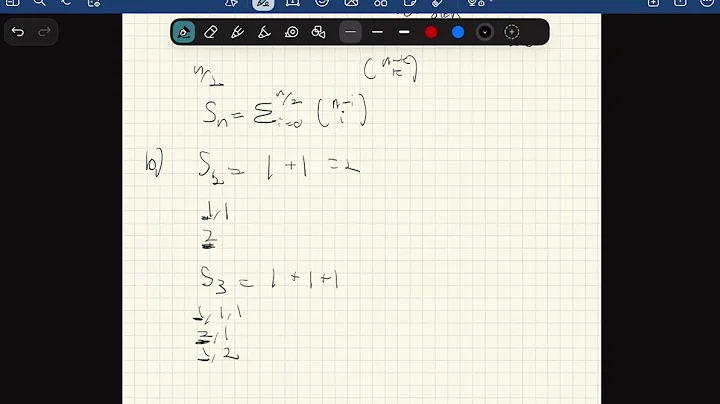 n/2
(n-k k)
Sn = Σ i=0 n/2 (n-i i)
b) S2 = 1 + 1 = 2
1,1
2
S3 = 1 + 1 + 1
1,1,1
2,1
1,2